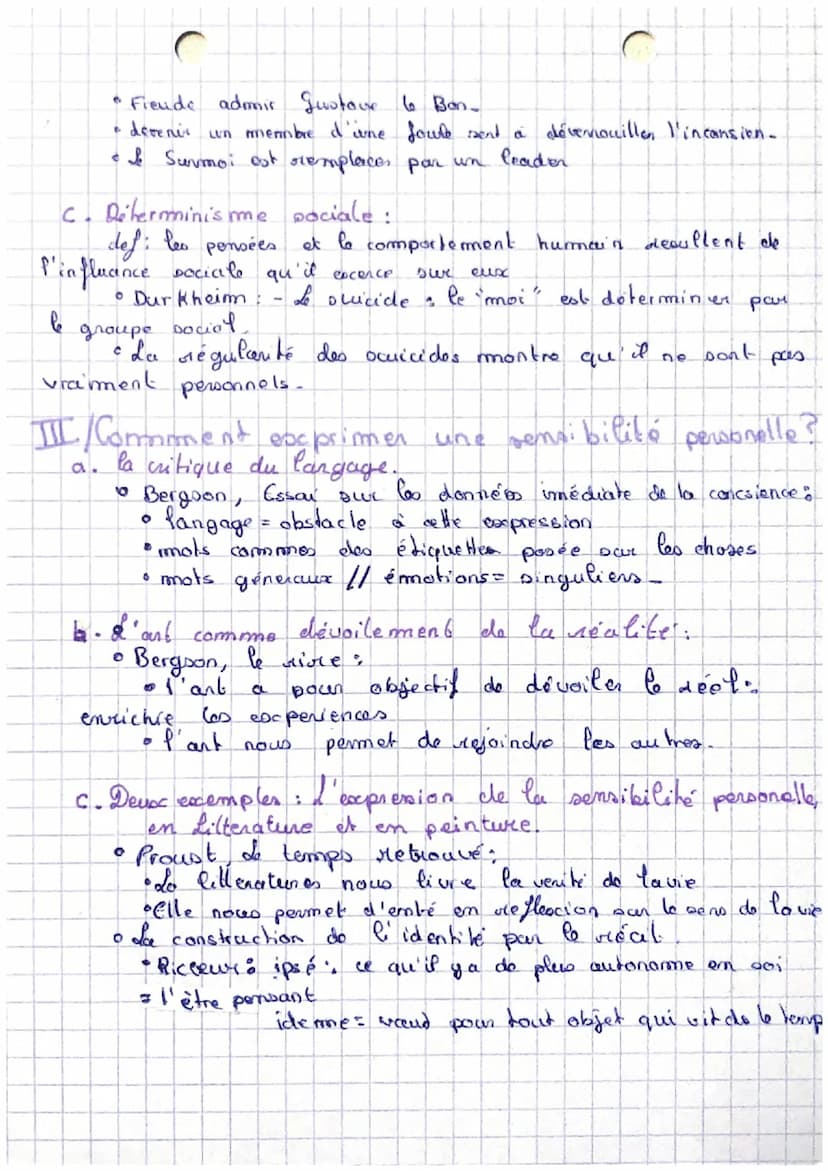 • Fieude admir Gustave le Bon_
• devenir un membre d'une foule sent à déverrouiller l'inconsien_
• le Surmoi est remplacer par un leader
C. Déterminisme sociale :
def: les pensées et le comportement humain decoullent de
l'influance sociale qu'il excerce sur eux
• Durkheim : - le suicide : le "moi" est déterminer par
le groupe social.
• La régularité des suicides montre qu'il ne sont pas
vraiment personnels_
III/Comment exprimer une sensibilité personelle?
a. la critique du langage.
• Bergson, Essai sur les données imédiate de la concsience :
• langage = obstacle à cette expression
• mots commes des étiquettes posée sur les choses
• mots généraux // émotions = singuliers_
b. L'art comme dévoilement de la réalité :
• Bergson, le rire :
• l'art a pour objectif de dévoiler le réel :
enrichie les experiences
• l'art nous permet de rejoindre les autres.
C. Deux exemples : L'expression de la sensibilité personelle,
en litterature et en peinture.
• Proust, le temps retrouvé :
• La litteratures nous livre la verité de la vie
• Elle nous permet d'entré en reflexcion sur le sens de la vie
• La construction de l'identité par le récit.
• Ricoeur : ipsé : ce qu'il y a de plus autonome en soi
= l'être pensant
idemme = vaeud pour tout objet qui vit ds le temp